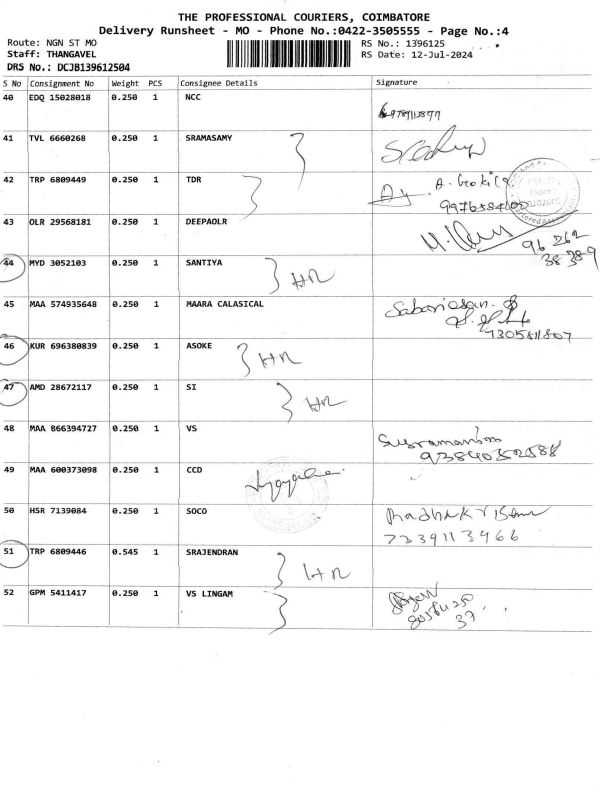 THE PROFESSIONAL COURIERS, COIMBATORE
Delivery Runsheet - MO - Phone No.:0422-3505555 - Page No.:4
Route: NGN ST MO RS No.: 1396125
Staff: THANGAVEL RS Date: 12-Jul-2024
DRS No.: DCJB139612504
S No Consignment No Weight PCS Consignee Details Signature
40 EDQ 15028018 0.250 1 NCC
41 TVL 6660268 0.250 1 SRAMASAMY
42 TRP 6809449 0.250 1 TDR
43 OLR 29568181 0.250 1 DEEPAOLR
96 262
38 389
44 MYD 3052103 0.250 1 SANTIYA HR
45 MAA 574935648 0.250 1 MAARA CALASICAL
7305811807
46 KUR 696380839 0.250 1 ASOKE HR
47 AMD 28672117 0.250 1 SI HR
48 MAA 866394727 0.250 1 VS
49 MAA 600373098 0.250 1 CCD
50 HSR 7139084 0.250 1 SOCO
7339113466
51 TRP 6809446 0.545 1 SRAJENDRAN HR
52 GPM 5411417 0.250 1 VS LINGAM